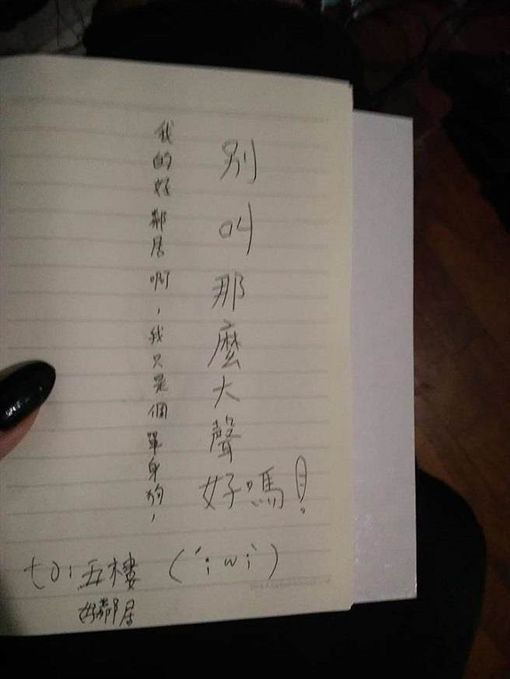 別叫那麼大聲好嗎!
我的好鄰居啊,我只是個單身狗,
to:五樓 (´;w;`)
好鄰居